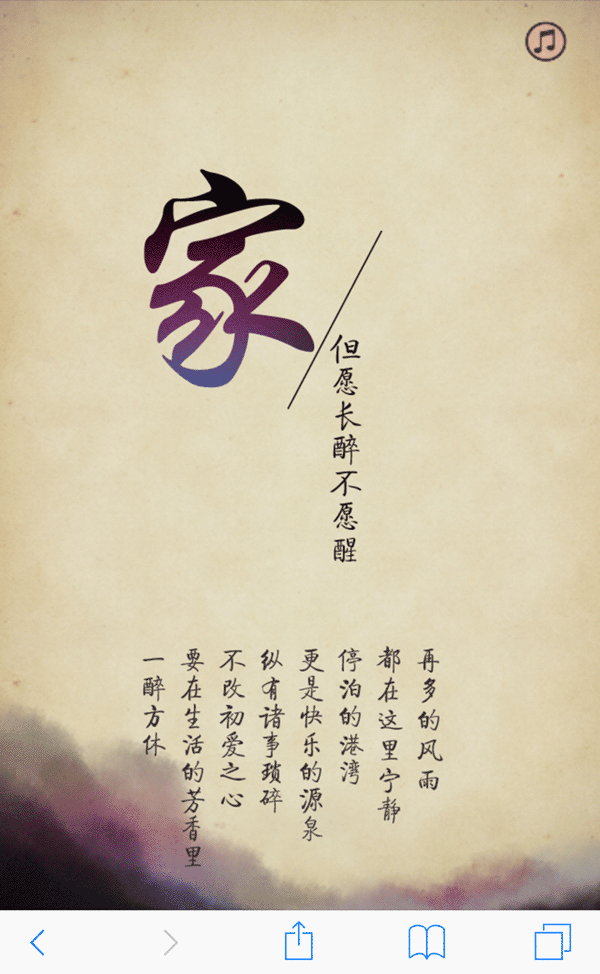 家
但愿长醉不愿醒
再多的风雨
都在这里宁静
停泊的港湾
更是快乐的源泉
纵有诸事琐碎
不改初爱之心
要在生活的芳香里
一醉方休